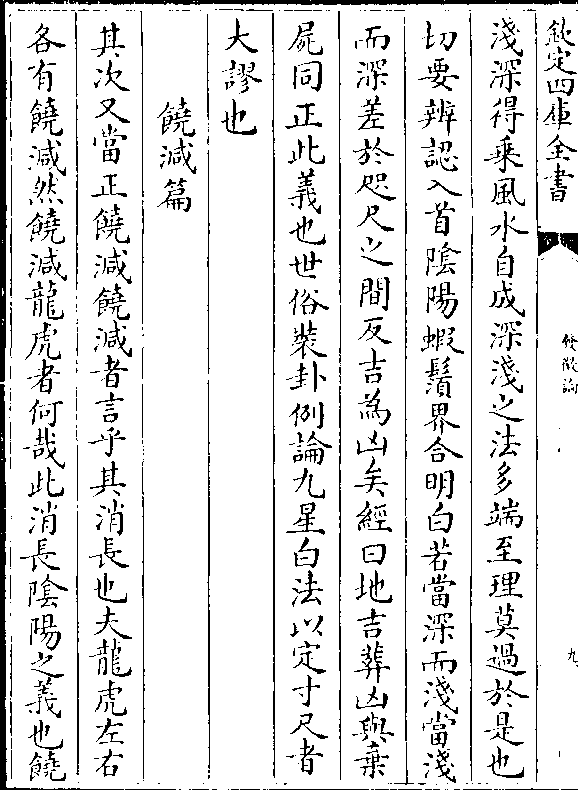 欽定四庫全書
發微論
九
淺深得乘風水自成深淺之法多端至理莫過於是也
切要辨認入首陰陽蝦鬚界合明白若當深而淺當淺
而深差於咫尺之間反吉為凶矣經曰地吉葬凶與棄
屍同正此義也世俗裝卦例論九星白法以定寸尺者
大謬也
饒減篇
其次又當正饒減饒減者言乎其消長也夫龍虎左右
各有饒減然饒減龍虎者何哉此消長陰陽之義也饒